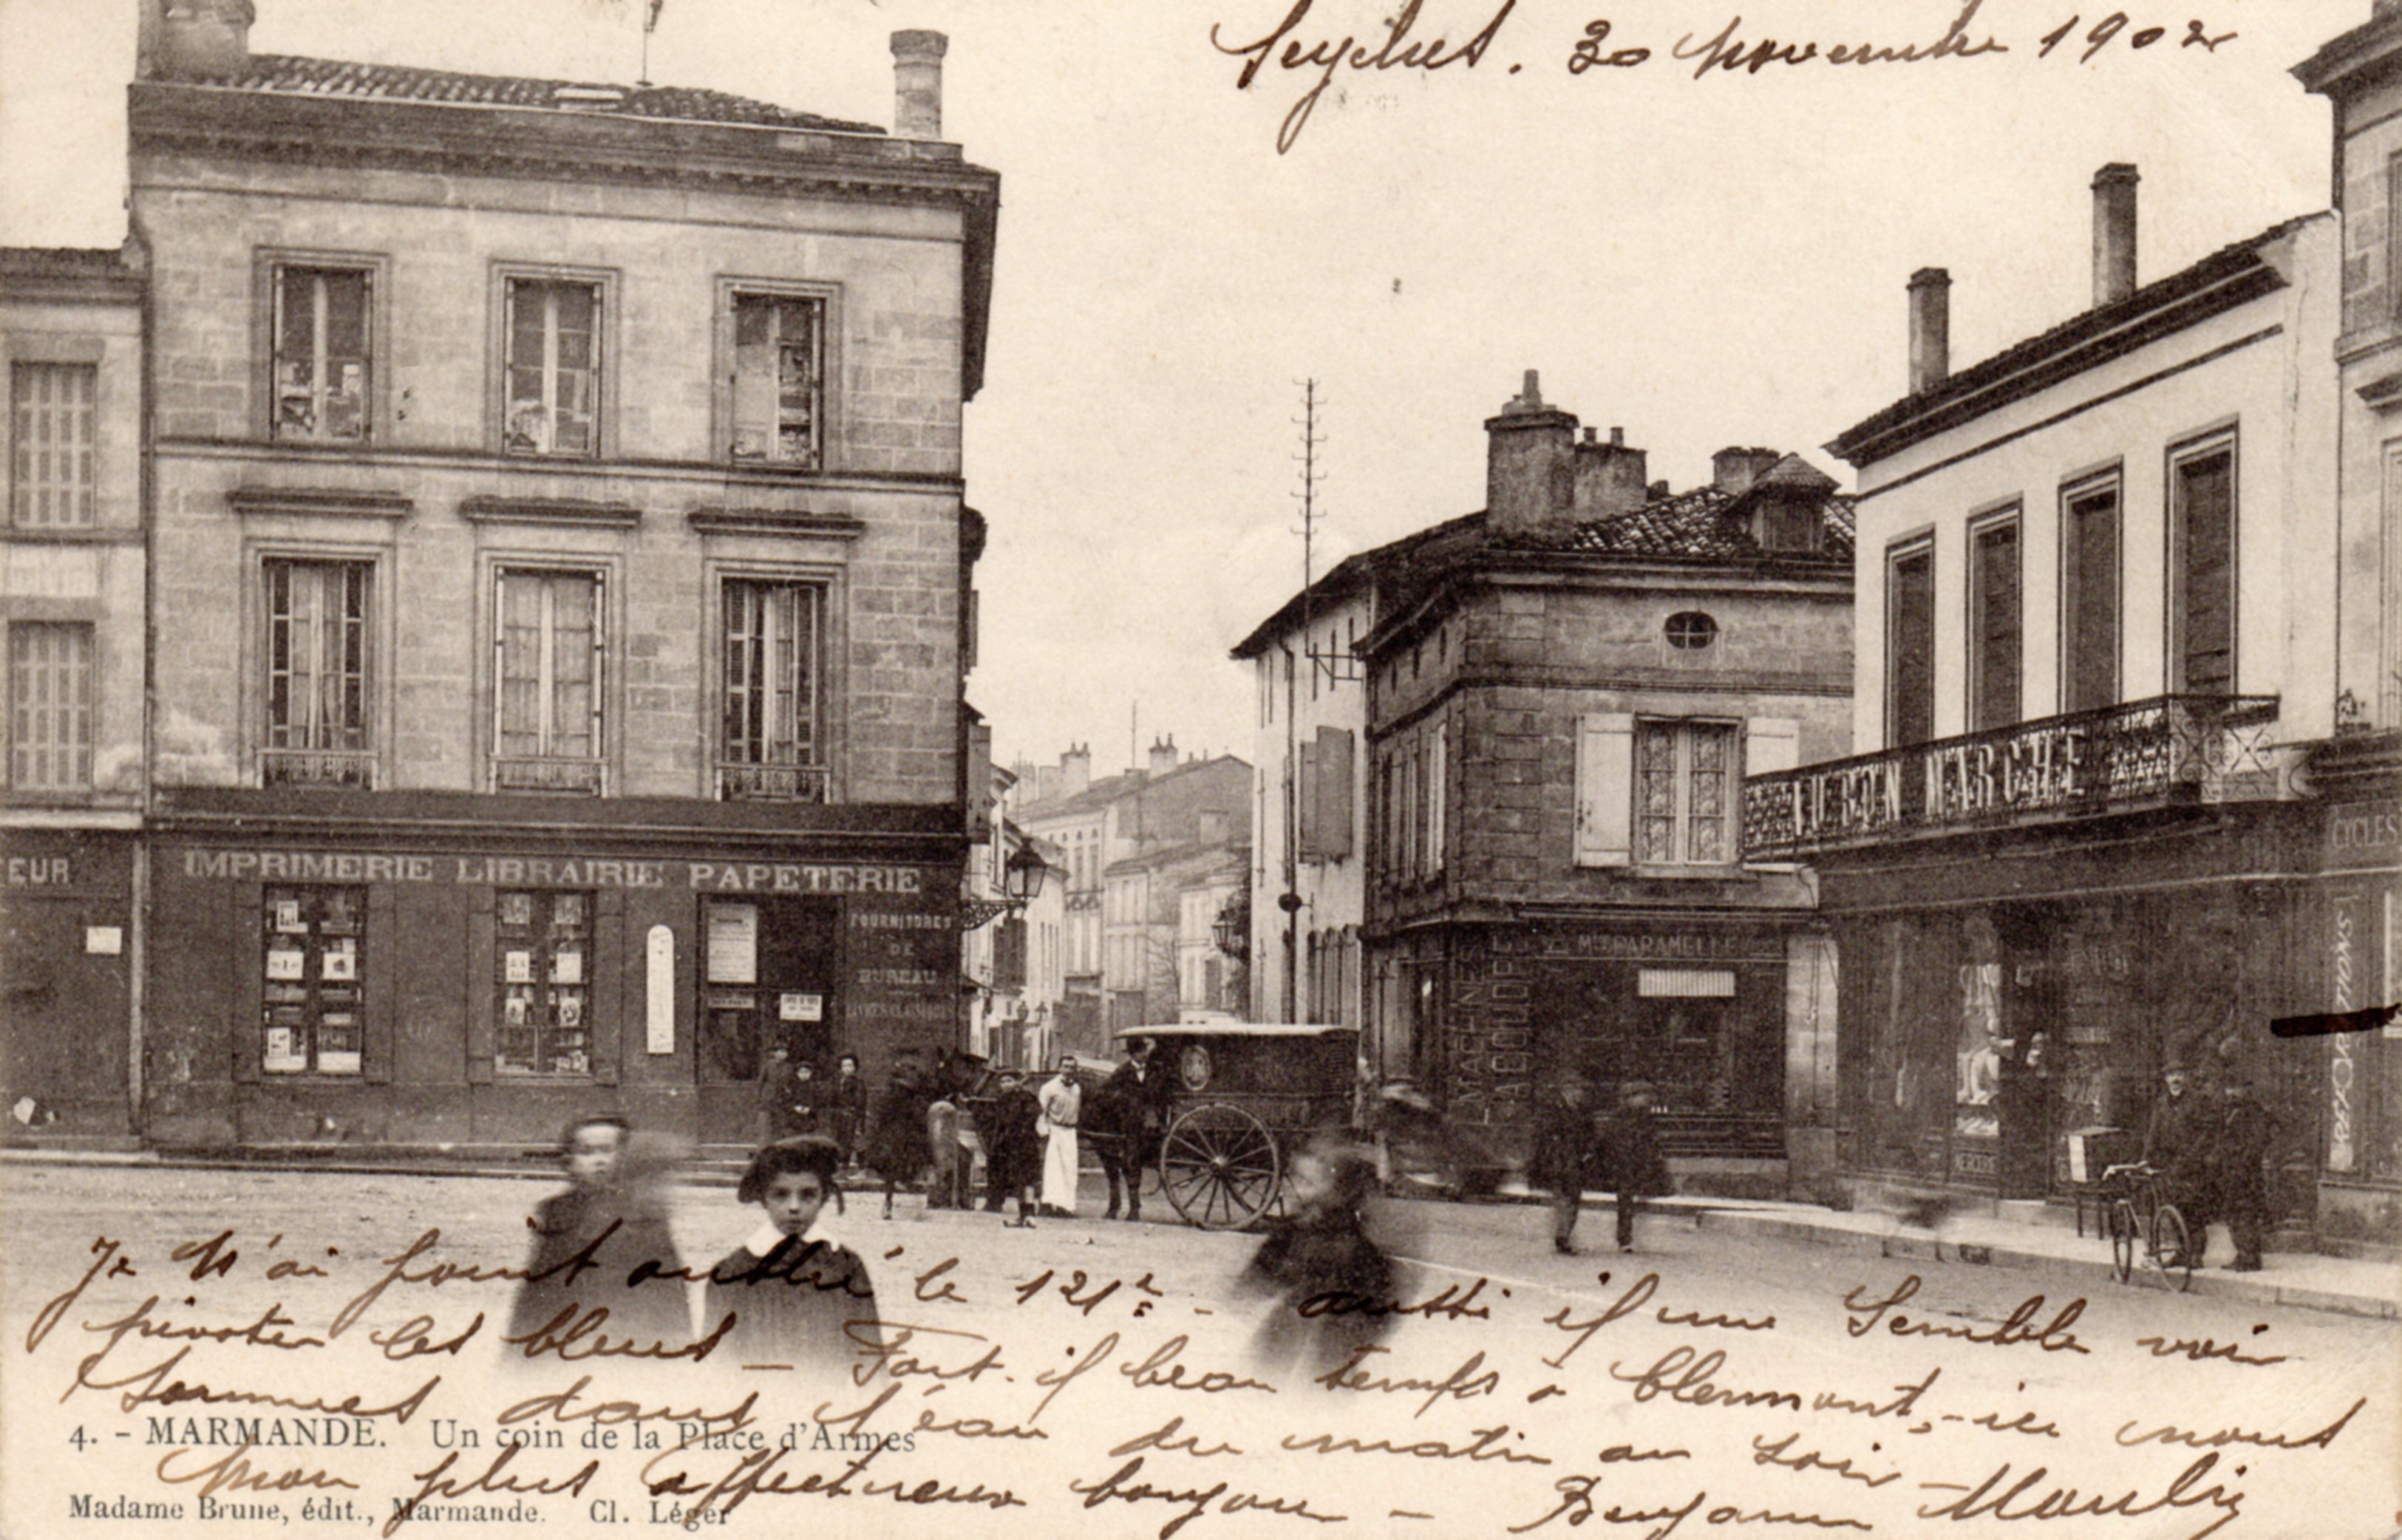 Seyches. 30 Novembre 1902
AU BON MARCHE
CYCLES
EUR
IMPRIMERIE LIBRAIRIE PAPETERIE
FOURNITURES
DE
BUREAU
LIVRES CLASSIQUES
MACHINES
A COUDRE
PARAMELLE
Je n'ai point oublié le 121e - aussi il me semble voir
pivoter les bleus - Fait-il beau temps à Clermont, - ici nous
sommes dans l'eau du matin au soir -
4. - MARMANDE. Un coin de la Place d'Armes
Mon plus affectueux bonjour - Benjamin
Madame Brune, édit., Marmande. Cl. Léger